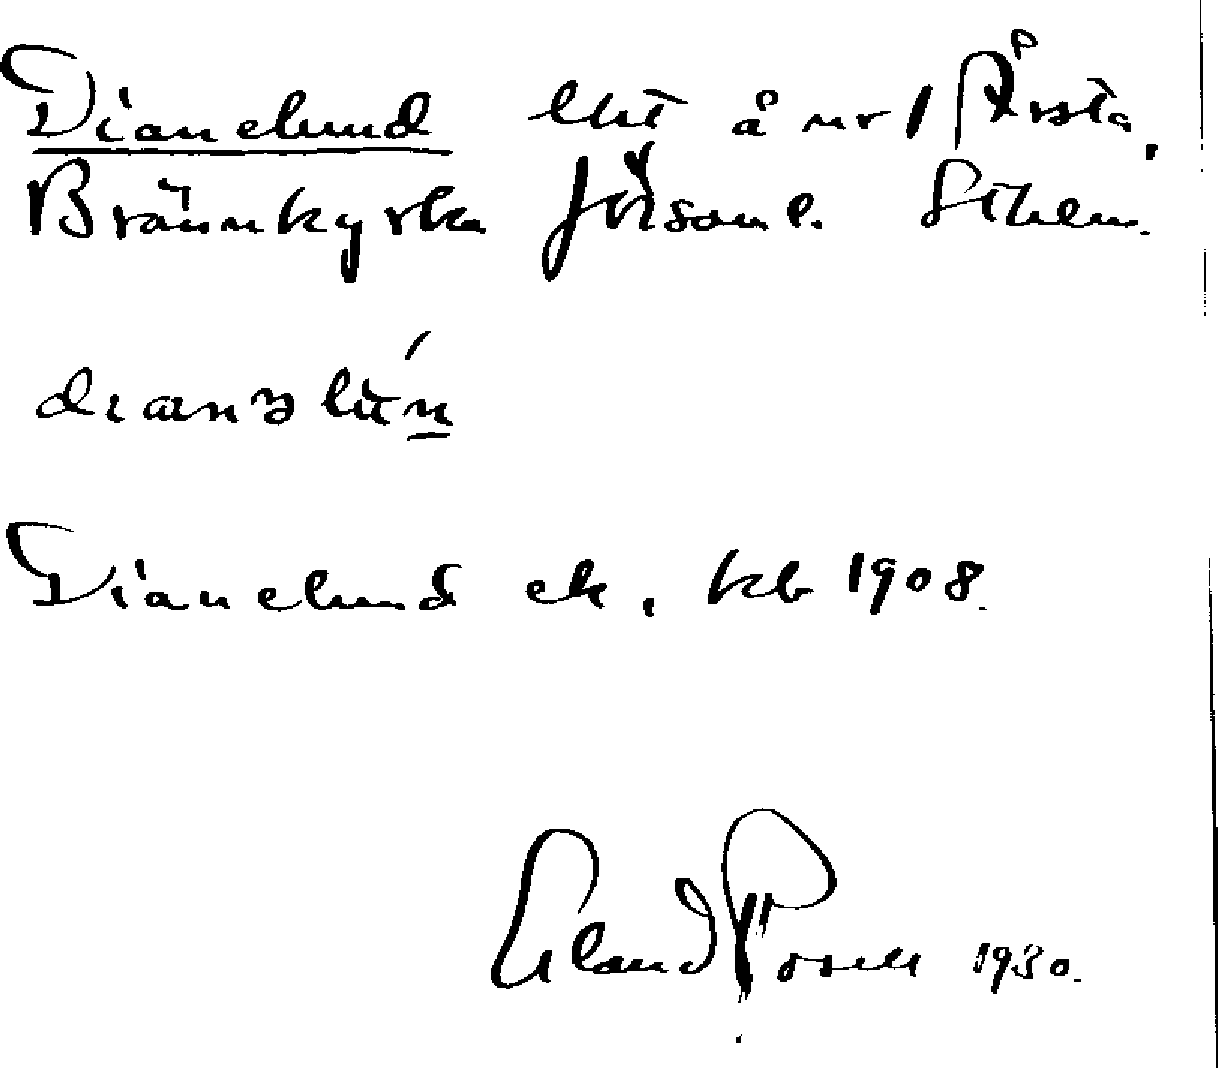 Dianelund lht å nr 1 Årsta,
Brännkyrka förs. Sthlm.
dianəlún
Dianelund ek, kb 1908.
Erland Rosell 1930.